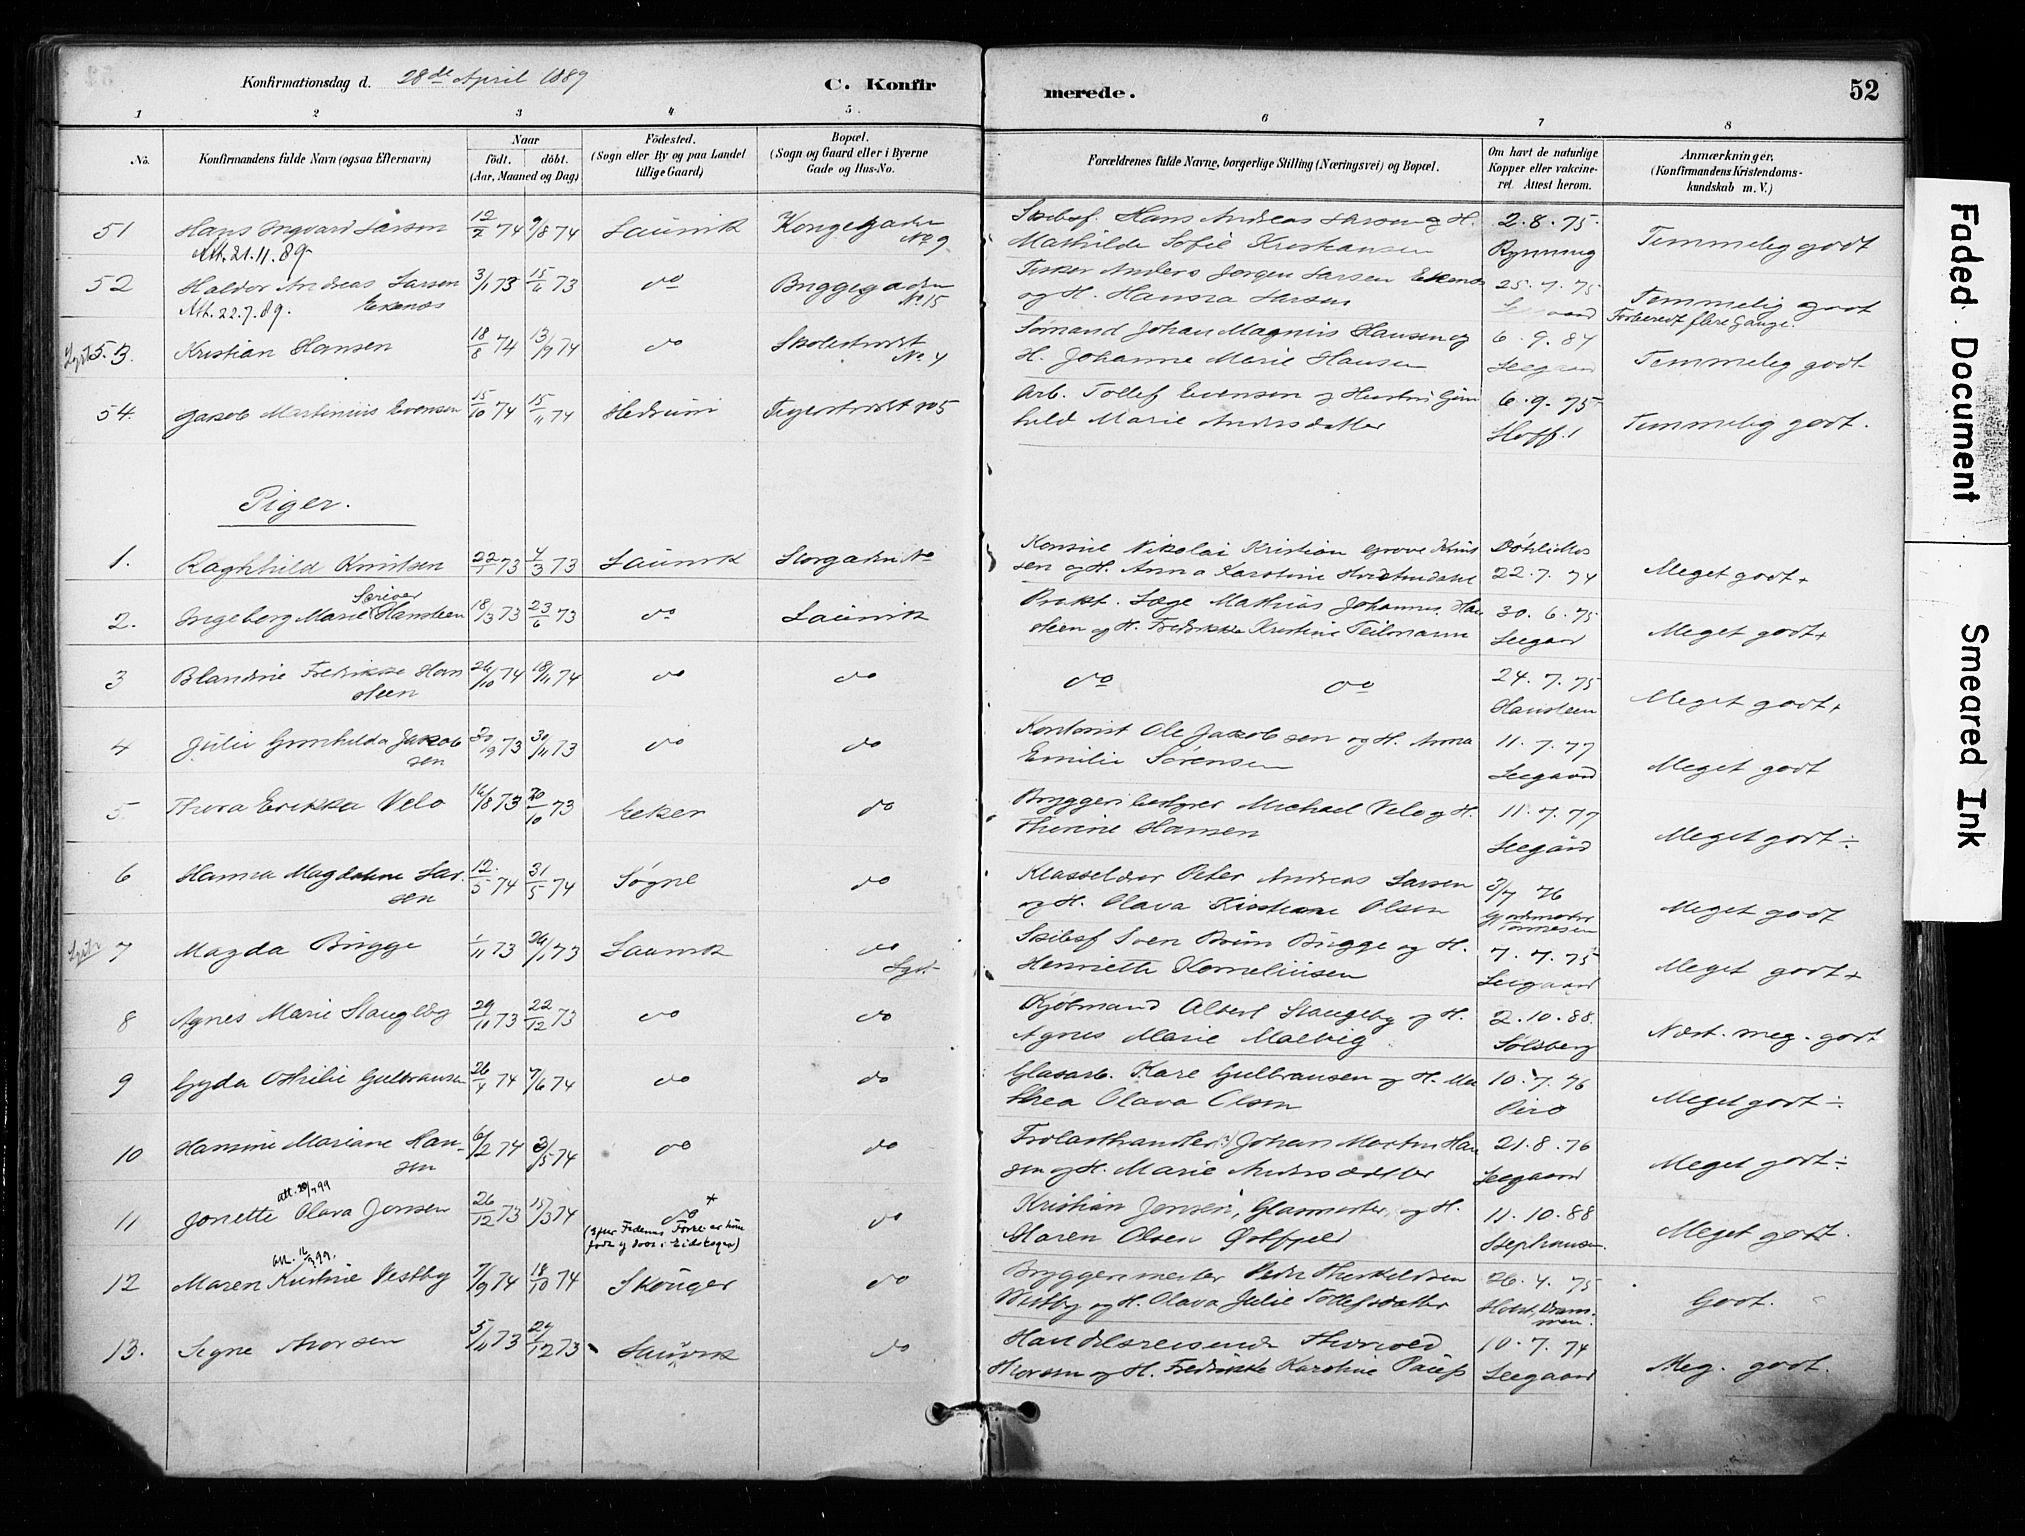 Konfirmationsdag d. 28de April 1889
C. Konfir
merede.
52
1 2 3 4 5 6 7 8
No. Konfirmandens fulde Navn (ogsaa Efternavn) Naar födt. döbt. (Aar, Maaned og Dag) Födested. (Sogn eller By og paa Landet tillige Gaard) Bopæl. (Sogn og Gaard eller i Byerne Gade og Hus-No. Forældrenes fulde Navne, borgerlige Stilling (Næringsvei) og Bopæl. Om havt de naturlige Kopper eller vakcineret. Attest herom. Anmærkninger. (Konfirmandens Kristendomskundskab m. V.)
51 Hans Ingvard Larsen 12/7 74 9/8 74 Laurvik Kongegaden No 9 Skibsf. Hans Andreas Larsen og H. 2.8.75 Temmelig godt
Att. 21.11.89 Mathilde Sofie Kristiansen Rynning
52 Haldor Andreas Larsen 3/1 73 15/6 73 do Bryggegaden No 15 Fisker Anders Jørgen Larsen Ekenæs 25.7.75 Temmelig godt
Att. 22.7.89. Ekenæs og H. Hanna Larsen Forberedt flere Gange.
53. Kristian Hansen 18/8 74 13/9 74 do Skolestrædet No 4 Sømand Johan Magnus Hansen og 6.9.84 Temmelig godt
H. Johanne Marie Hansen Seegaard
54. Jakob Martinius Evensen 15/10 74 15/11 74 Hedrum No 5 Arb. Tollef Evensen og Hustru Gunhild Marie Andersdatter 6.9.75 Hoff.
Temmelig godt.
Piger.
1. Ragnhild Knudsen 22/1 73 4/3 73 Laurvik Storgaden No Konsul Nikolai Kristian Grove Knudsen og H. Anna Karoline 22.7.74 Meget godt +
2. Ingeborg Marie Scriver Hansteen 18/3 73 23/6 73 do Laurvik Prakt. Læge Mathias Johannes Hansteen og H. Fredrikke Kristine Teilmann 30.6.75 Seegaard Meget godt +
3 Blandine Fredrikke Hansteen 26/10 74 18/11 74 do do do do 24.7.75 Hansteen Meget godt +
4 Julie Gunhilda Jakobsen 20/9 73 30/11 73 do do Kontorist Ole Jakobsen og H. Anna Emilie Sørensen 11.7.77 Seegaard Meget godt
5 Thora Erikka Velo 16/8 73 20/10 73 Eker do Bryggeribestyrer Michael Velo og H. Thrine Hansen 11.7.77 Seegård Meget godt ÷
6 Hanna Magdalene Larsen 12/5 74 31/5 74 Søgne do Klasselærer Peter Andreas Larsen og H. Olava Kristiane Olsen 3/7 76 Gjordemoder Tønnesen Meget godt
7 Magda Brygge 1/11 73 26/1 73 Laurvik do Skibsf Sven Brun Brygge og H. Henriette Korneliusen 7.7.75 Seegaard Meget godt +
8 Agnes Marie Slaugeby 29/10 73 22/12 73 do do Kjøbmand Albert Slaugeby og H. Agnes Marie Malvig 2.10.88. Solsberg Næst. meg. godt
9 Gyda Othilie Gulbransen 26/4 74 7/6 74 do do Glasarb. Karl Gulbransen og H. Mathea Olava Olsen 10.7.76 Piro Meget godt ÷
10 Hansine Mariane Hansen 6/2 74 3/5 74 do do Johan Martin Hansen og H. Marie Andersdatter 21.8.76 Seegaard Meget godt ÷
11 Jonette Olava Jensen 26/12 73 15/3 74 do * do Kristian Jensen, Glasmester, og H. Maren Olsen Østfjeld 11.10.88 Stephansen. Meget godt.
(Ifter Faderens Forkl. er hun født og døbt i Eidskogen)
12 Maren Kristine Vestby 7/9 74 18/10 74 Skouger do Bryggerimester Peder Therkeldsen Westby og H. Olava Julie Tollefsdatter 26.4.75 Holst, Drammen. Godt.
13. Signe Thorsen 5/11 73 29/12 73 Laurvik do Handelsreisende Thorvald Thorsen og H. Fredrikke Karoline Pauss 10.7.74 Seegaard Meg. godt.
Faded Document
Smeared Ink